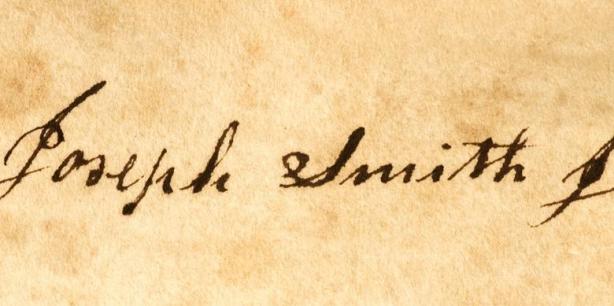 Joseph Smith J